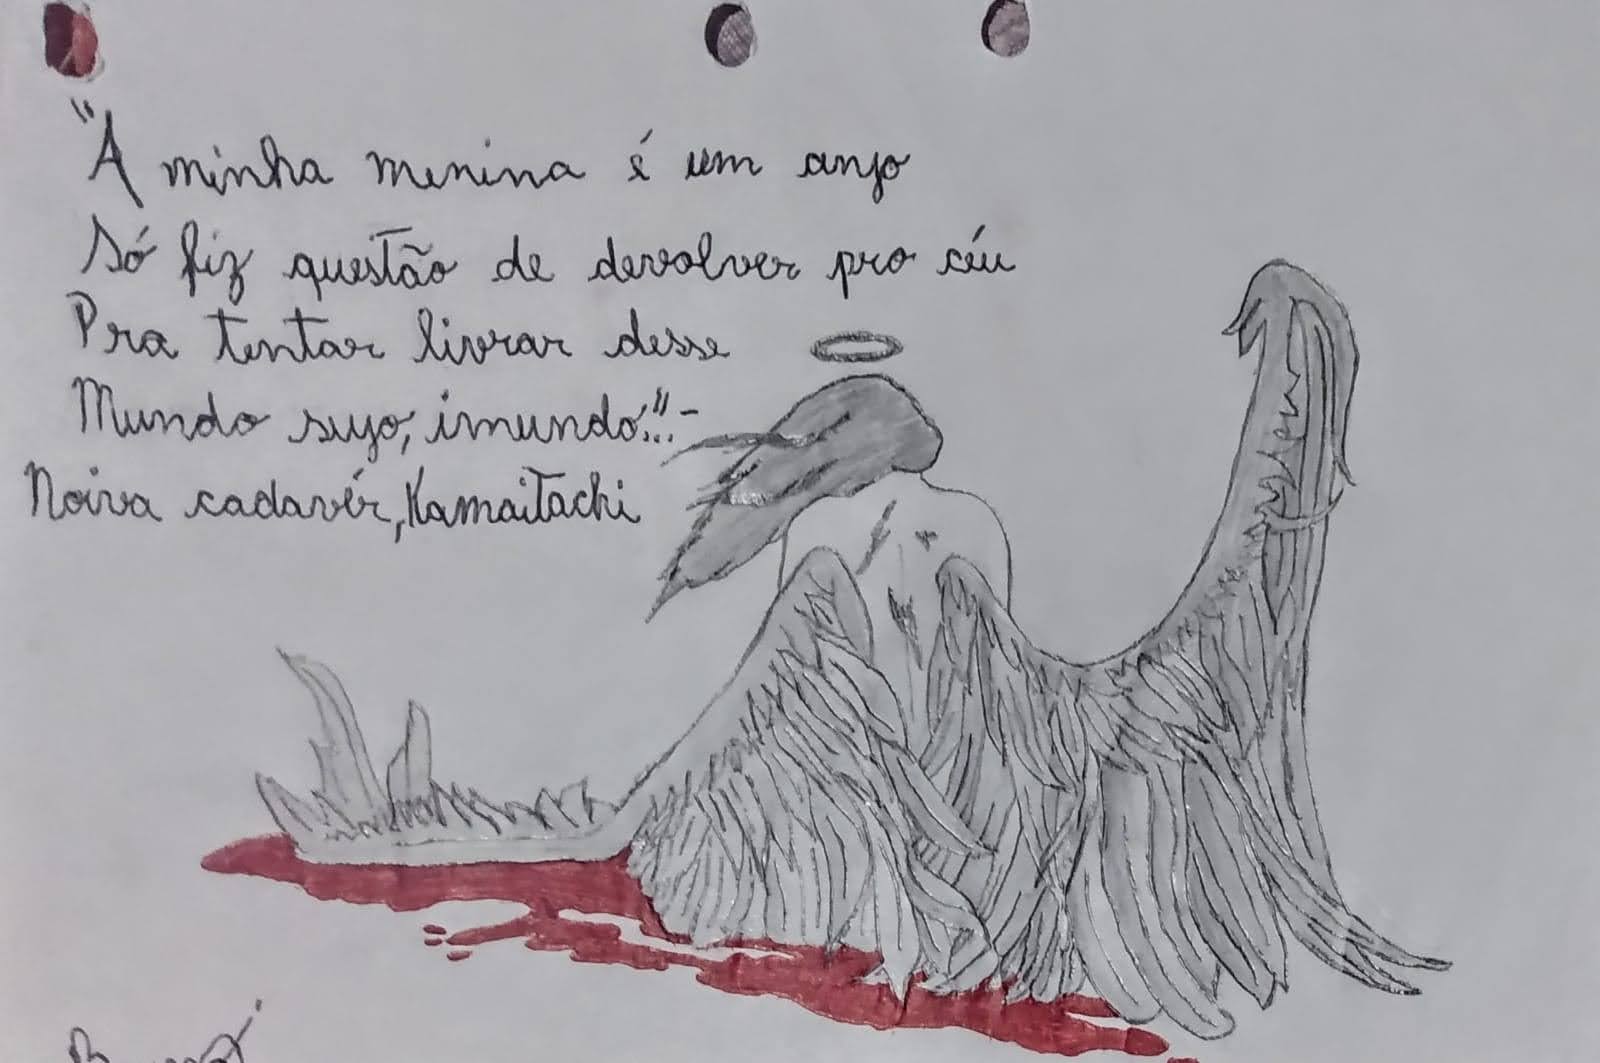 "A minha menina é um anjo
Só fiz questão de devolver pro céu
Pra tentar livrar desse
Mundo sujo, imundo..."-
Noiva cadavér, Kamaitachi